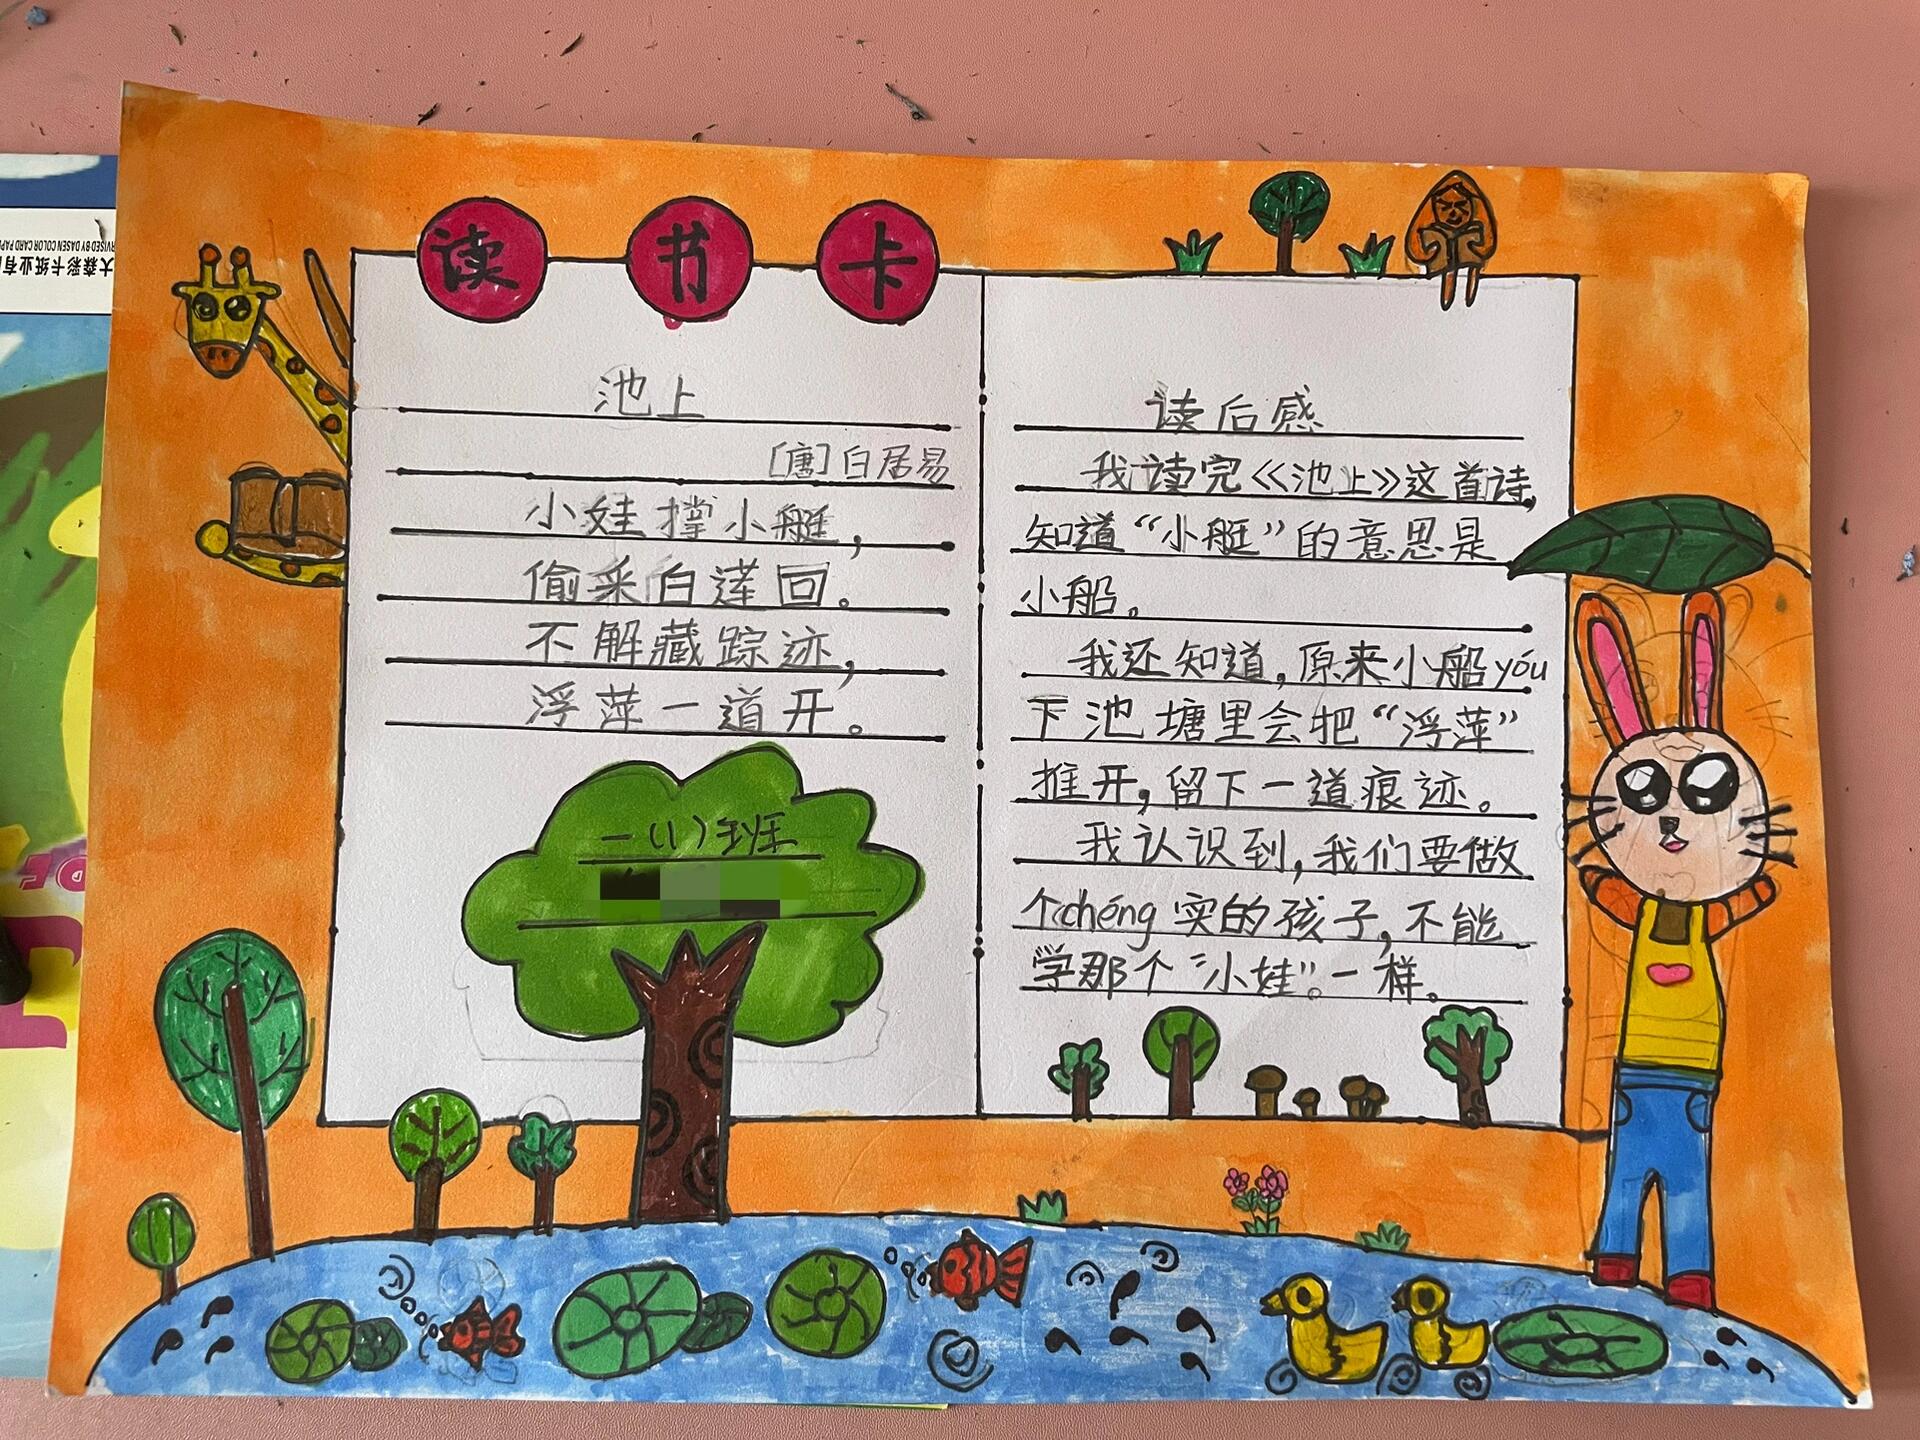 读书卡
池上
[唐]白居易
小娃撑小艇，
偷采白莲回。
不解藏踪迹，
浮萍一道开。
一(1)班
读后感
我读完《池上》这首诗，
知道“小艇”的意思是
小船。
我还知道，原来小船yóu
下池塘里会把“浮萍”
推开，留下一道痕迹。
我认识到，我们要做
个chéng实的孩子，不能
学那个“小娃”。一样。
RVISED BY DASEN COLOR CARD PAP
大森彩卡纸业有